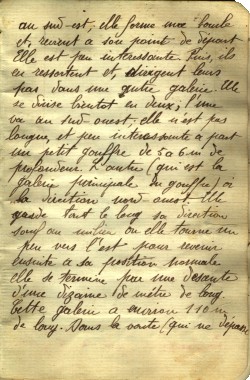 au sud-est, elle forme une boucle
et, revient a son point de départ
Elle est peu interessante. Puis, ils
en ressortent et, dirigent leurs
pas, dans une autre galerie. Elle
se divise bientot en deux; l'une
va au sud-ouest. elle n'est pas
longue, et peu interessante a part
un petit gouffre de 5 a 6 m de
profondeur. L'autre (qui est la
galerie principale du gouffre) a
sa direction nord-ouest. Elle
garde tout le long sa direction
sauf au milieu ou elle tourne un
peu vers l'est pour revenir
ensuite a sa position normale
elle se termine par une descente
d'une dizaine de mètre de long
Cette galerie a environ 110 m
de long. Dans la voute (qui ne dépasse